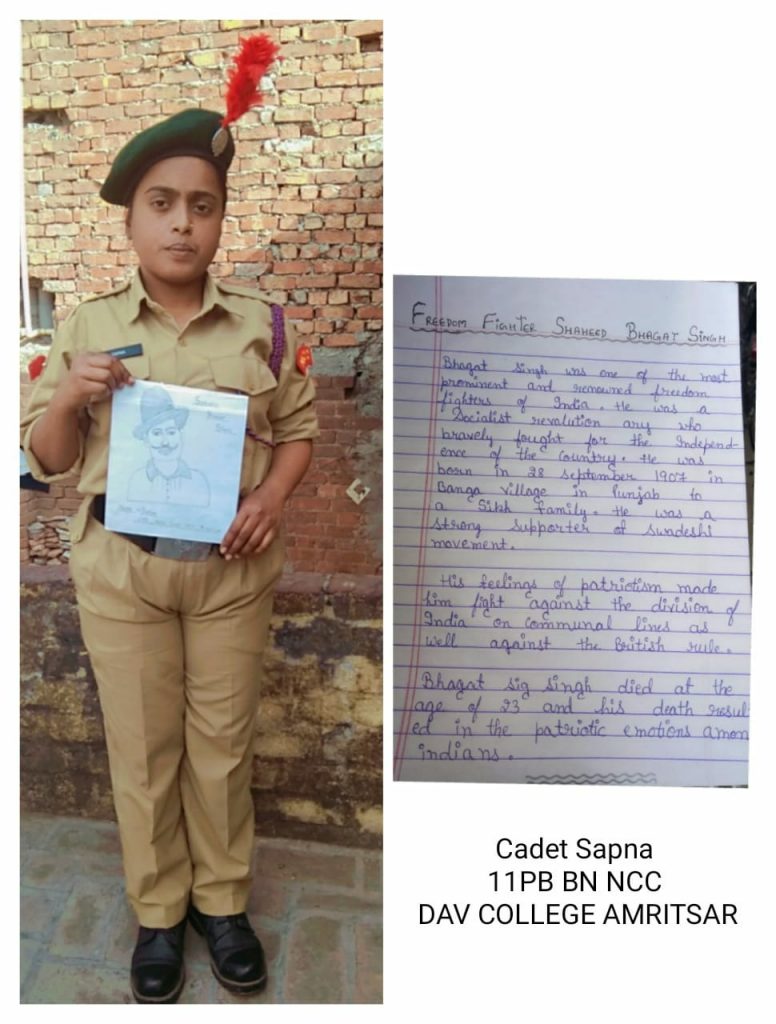 FREEDOM FIGHTER SHAHEED BHAGAT SINGH
Bhagat singh was one of the most
prominent and renowned freedom
fighters of India. He was a
Socialist revolution ary who
bravely fought for the Independ-
ence of the country. He was
born in 28 september 1907 in
Banga village in Punjab to
a Sikh family. He was a
strong supporter of swadeshi
movement.
His feelings of patriotism made
him fight against the division of
India on communal lines as
well against the British rule.
Bhagat sig singh died at the
age of 23 and his death result
ed in the patriotic emotions among
indians.
Cadet Sapna
11PB BN NCC
DAV COLLEGE AMRITSAR